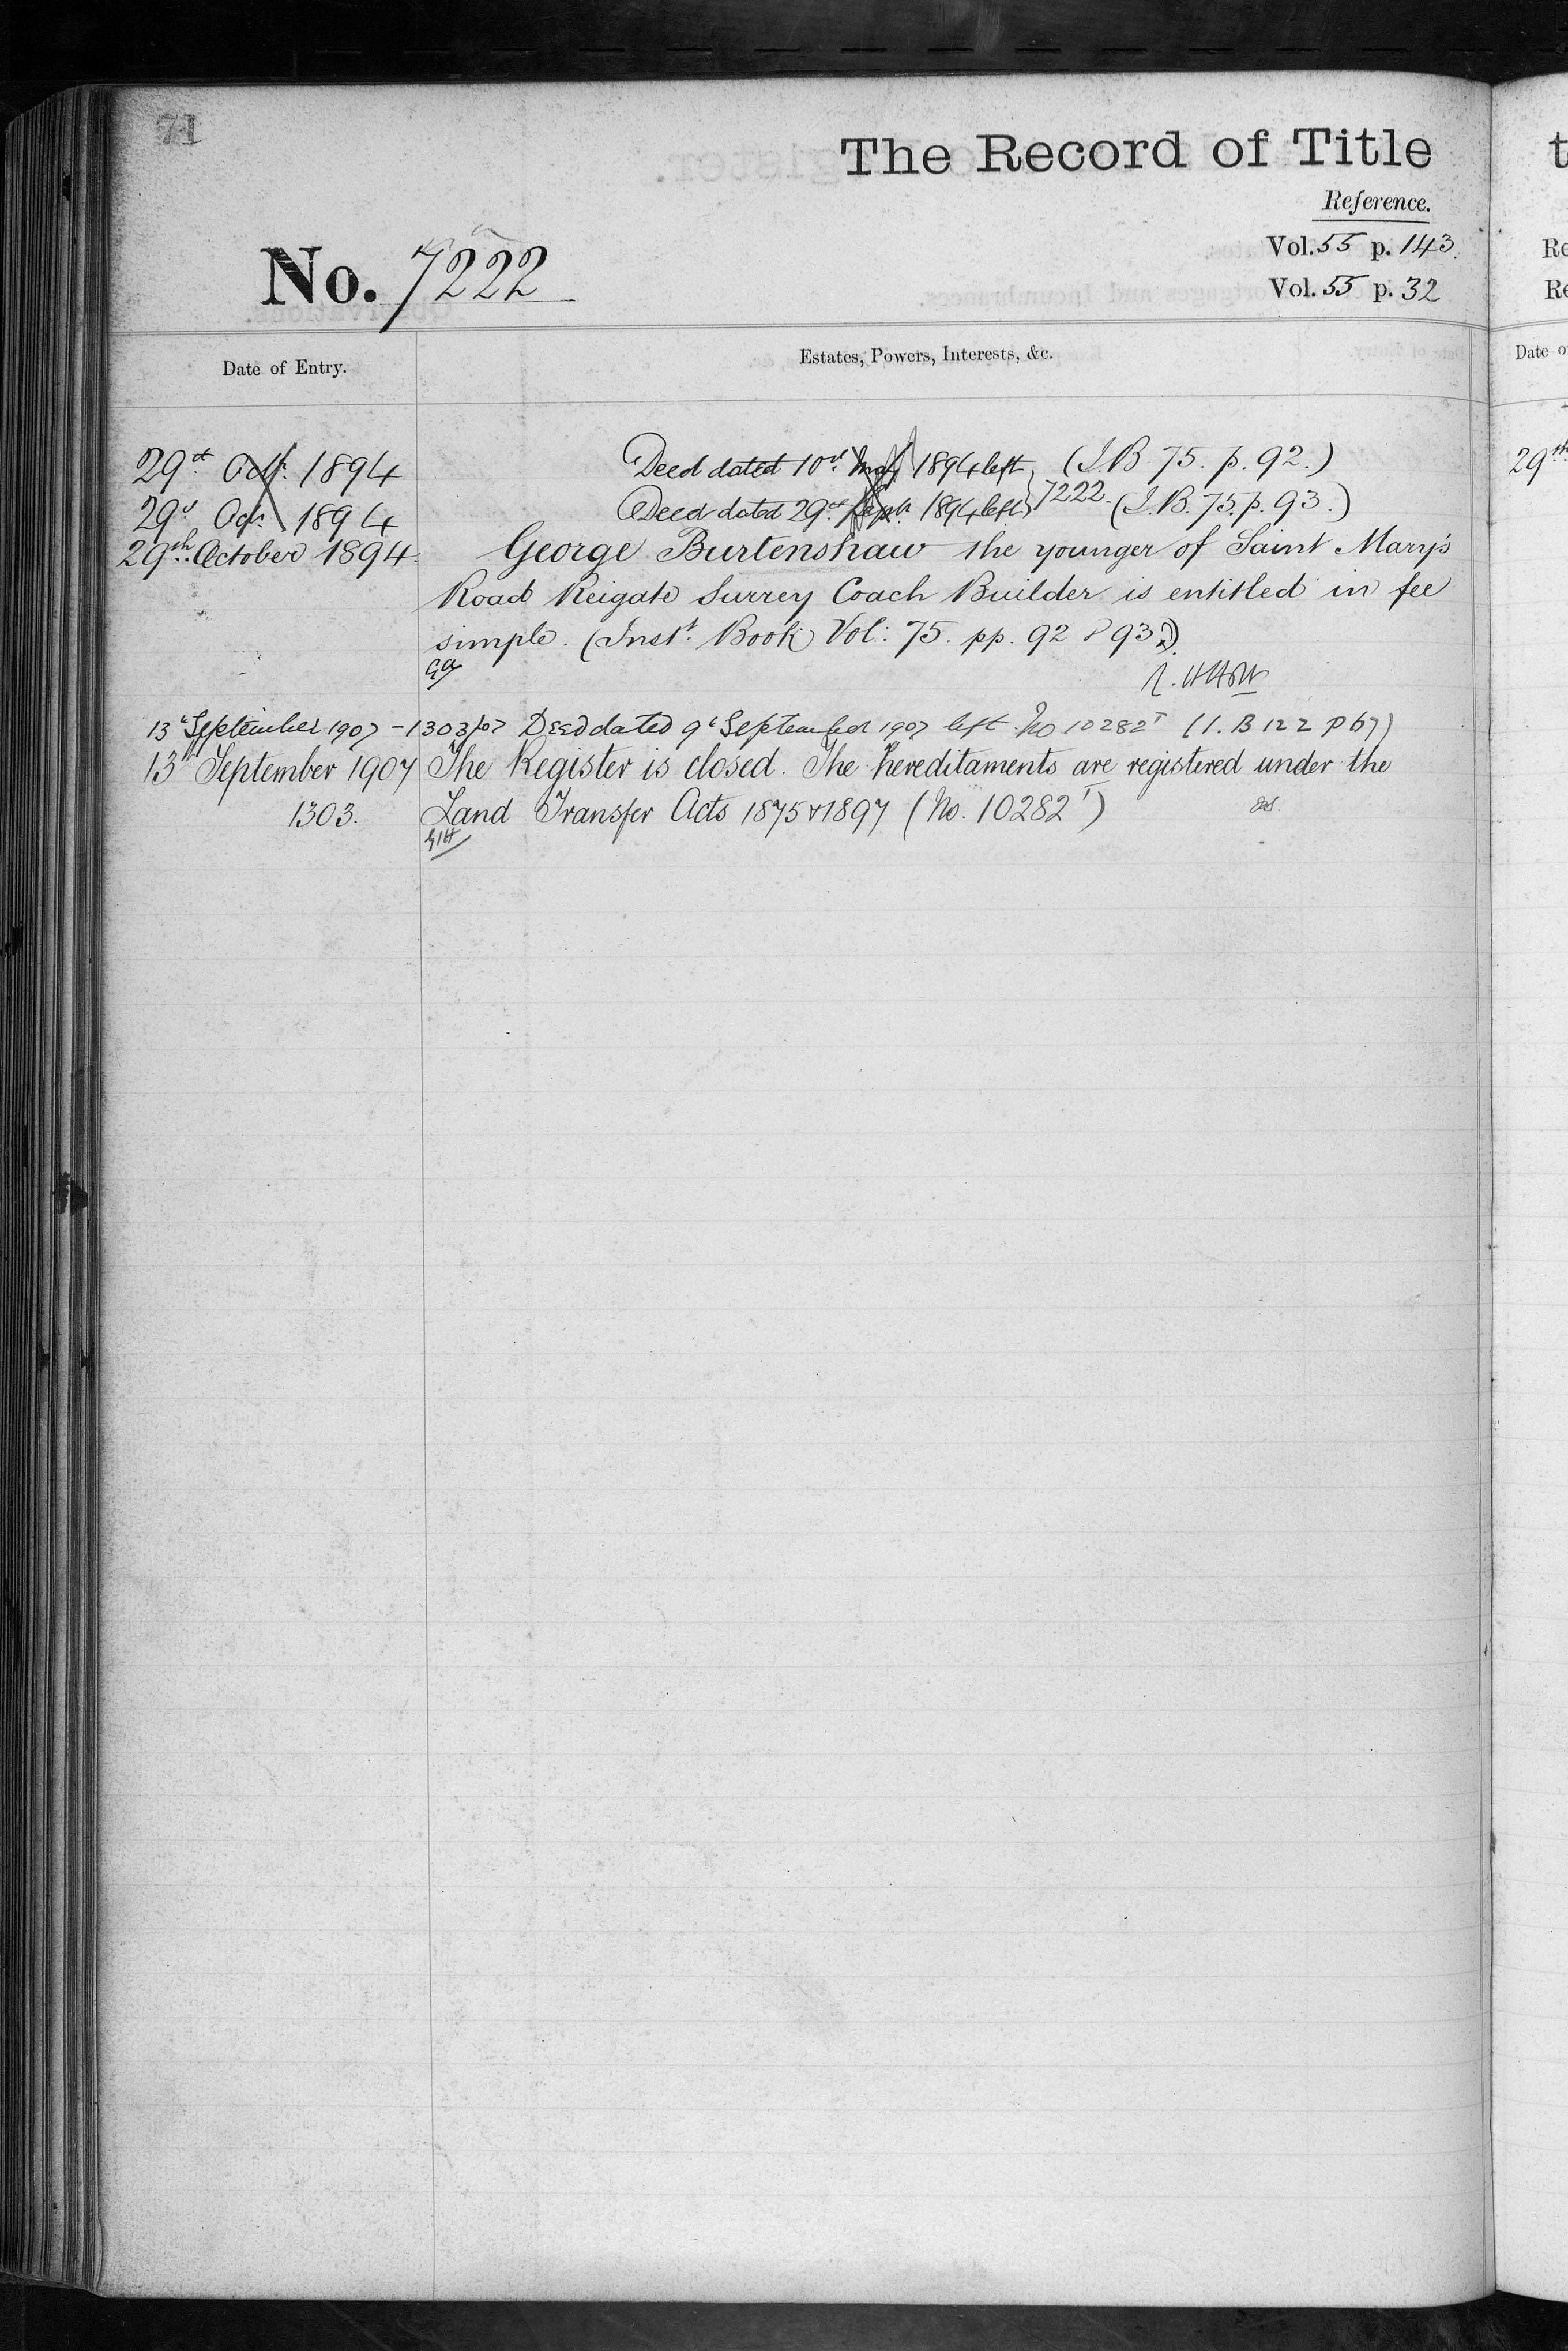 71
The Record of Title
Reference.
No. 7222
Vol. 55 p. 143.
Vol. 55 p. 32
Date of Entry.
Estates, Powers, Interests, &c.
29th Octr. 1894 Deed dated 10th May 1894 left (I.B. 75. p. 92.)
29th Octr. 1894 Deed dated 29th Septr. 1894 left 7222. (I.B. 75. p. 93.)
29th October 1894. George Burtenshaw the younger of Saint Mary's
Road Reigate Surrey Coach Builder is entitled in fee
simple. (Inst. Book Vol: 75. pp. 92 & 93.)
13th September 1907 - 1303/07 Deed dated 9th September 1907 left No 10282T (I.B 122 P 67)
13th September 1907 The Register is closed. The hereditaments are registered under the
1303. Land Transfer Acts 1875 & 1897 (No. 10282T)
Date o
29th